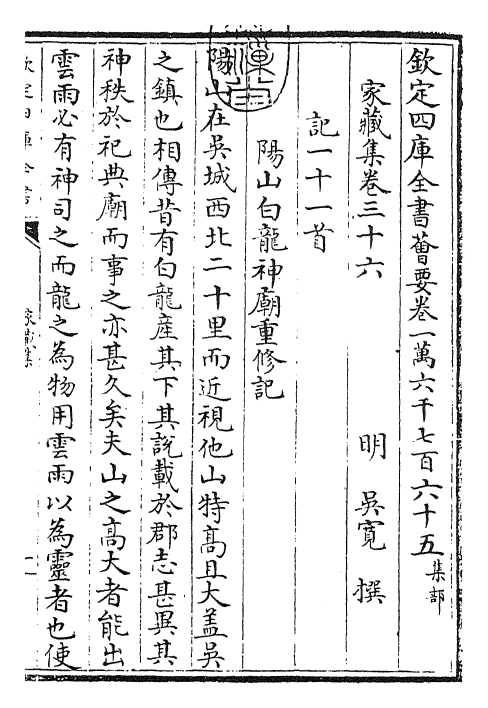 欽定四庫全書薈要卷一萬六千七百六十五集部
家藏集卷三十六
明 吳寬 撰
記一十一首
陽山白龍神廟重修記
陽山在吳城西北二十里而近視他山特高且大蓋吳
之鎮也相傳昔有白龍產其下其說載於郡志甚異其
神秩於祀典廟而事之亦甚久矣夫山之高大者能出
雲雨必有神司之而龍之為物用雲雨以為靈者也使
欽定四庫全書
家藏集
一